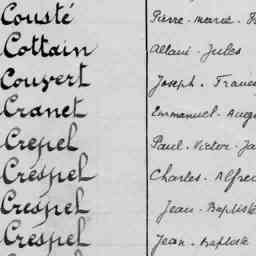 Cousté Pierre-marie-
Cottain Allain-Jules
Couvert Joseph-
Cranet Emmanuel-
Crepel Paul-Victor-
Crespel Charles-
Crespel Jean-Baptiste
Crespel Jean-Baptiste